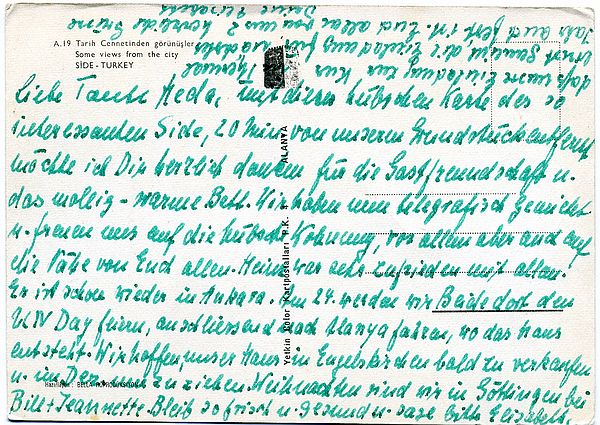 A.19 Tarih Cennetinden görünüşler
Some views from the city
SİDE - TURKEY
Liebe Tante Heda, mit dieser hübschen Karte des so
interessanten Side, 20 Min von unserem Grundstück entfernt
möchte ich Dir herzlich danken für die Gastfreundschaft u.
das mollig-warme Bett. Wir haben nun telegrafisch gemietet
u. freuen uns auf die hübsche Wohnung, vor allem aber auch auf
die Nähe von Euch allen. Heinz war sehr zufrieden mit allem.
Er ist schon wieder in Ankara. Am 24. werden wir Beide dort den
UN Day feiern, anschliessend nach Alanya fahren, wo das Haus
entsteht. Wir hoffen, unser Haus in Engelskirchen bald zu verkaufen
u. im Dez. zu ziehen. Weihnachten sind wir in Göttingen bei
Bill + Jeannette. Bleib so frisch u. gesund u. sage bitte Elisabeth,
dass unsere Einladung zur Kur
Jahr auch fest ist. Euch allen von uns 2 herzliche Grüsse
Deine
Yetkin Color Kartpostalları P.K. ALANYA